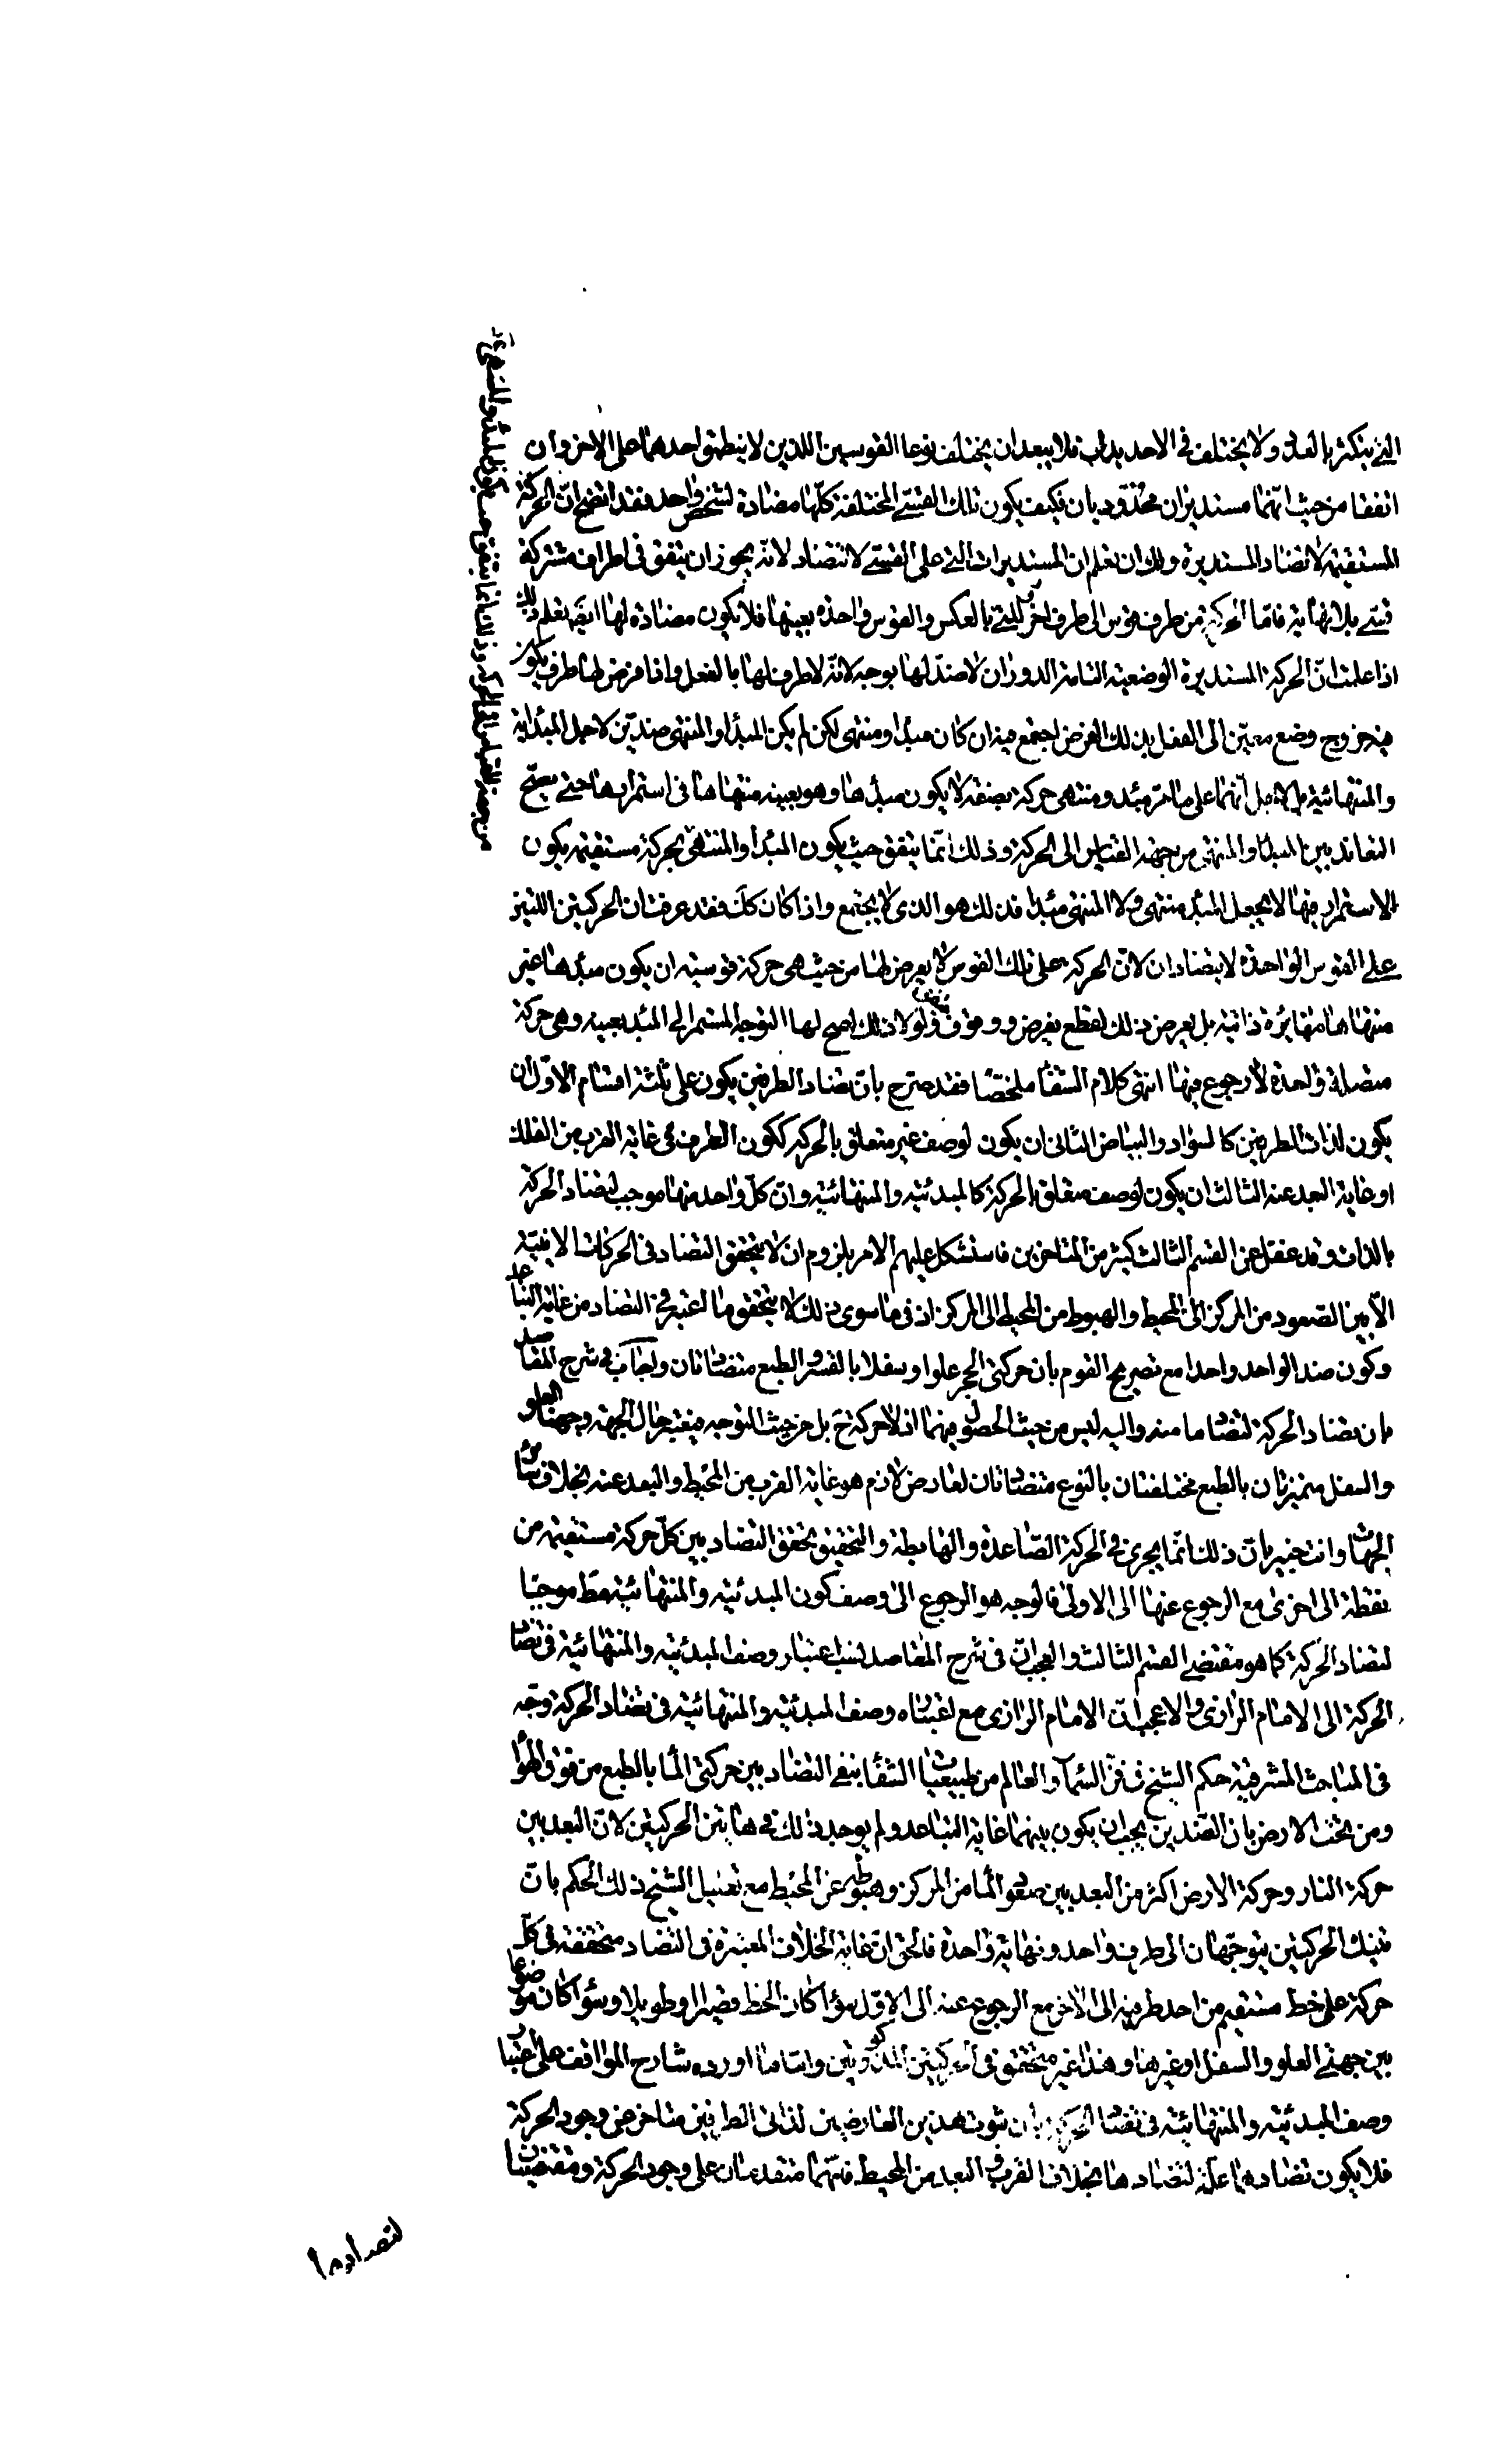 التي يتكثر بالعدد ولا يختلف في الاحديداب فلا يبعد ان يختلف نوعا القوسين اللذين لا ينطبق احدهما على الاخر وان
اتفقا من حيث انهما مستديران محدودبان فكيف يكون تلك القسي المختلفة كلها مضادة لشخص واحد فقد اتضح ان الحركة
المستقيمة لا تضاد المستديرة ولك ان تعلم ان المستديرات التي على القسي لا تتضاد لانه يجوز ان يتفق في اطراف مشتركة
قسي بلا نهاية فاما الحركة من طرف قوس الى طرف اخر للتي بالعكس والقوس واحدة بعينها فلا يكون مضادة لها ايضا يعلم ذلك
اذا علمت ان الحركة المستديرة الوضعية التامة الدوران لا ضد لها بوجه لانه لا طرف لها بالفعل واذا فرض لها طرف يكون
بخروج وضع معين الى الفعل بذلك الفرض اجتمع فيه ان كان مبدا ومنتهى لكن لم يكن المبدا والمنتهى ضدين لاجل المبدائية
والمنتهائية بل لاجل انهما على ما مر مبدء ومنتهى حركة بصفة لا يكون مبدؤها وهو بعينه منتهاها في استمرارها حتى يصح
التعاند بين المبدا والمنتهى من جهة القياس الى الحركة وذلك انما يتفق حيث يكون المبدا والمنتهى لحركة مستقيمة يكون
الاستمرار فيها لا يجعل المبدء منتهى ولا المنتهى مبدا فذلك هو الذى لا يجتمع واذا كان كك فقد عرفت ان الحركتين اللتين
على القوس الواحدة لا يتضادان لان الحركة على تلك القوس لا يعرض لها من حيث هى حركة قوسية ان يكون مبدؤها غير
منتهاها مغايرة ذاتية بل يعرض ذلك لقطع يفرض ووقوف ولولا ذلك لصح لها التوجه المستمر الى المبدء بعينه وهى حركة
متصلة واحدة لا رجوع فيها انتهى كلام الشفا ملخصا فقد صرح بان تضاد الطرفين يكون على ثلثة اقسام الاول ان
يكون لذات الطرفين كالسواد والبياض الثانى ان يكون لوصف غير متعلق بالحركة ككون الطرف فى غاية القرب من الفلك
او غاية البعد عنه الثالث ان يكون لوصف متعلق بالحركة كالمبدئية والمنتهائية وان كل واحد منها موجب لتضاد الحركة
بالذات وقد غفل عن القسم الثالث كثير من المتاخرين فاستشكل عليهم الامر بلزوم ان لا يتحقق التضاد فى الحركات الاينية
الا بين الصعود من المركز الى المحيط والهبوط من المحيط الى المركز اذ فى ما سوى ذلك لا يتحقق ما اعتبر فى التضاد من غاية التباعد
وكون ضد الواحد واحدا مع تصريح القوم بان حركتى الحجر علوا وسفلا بالقسر والطبع متضادتان واجاب فى شرح المقاصد
بان تضاد الحركة لتضاد ما منه واليه ليس من حيث الحصول فيهما اذ لا حركة ح بل من حيث التوجه فيعتبر حال الجهة وجهتا العلو
والسفل متميزتان بالطبع مختلفتان بالنوع متضادتان لعارض لازم هو غاية القرب من المحيط والبعد عنه بخلاف سائر
الجهات وانت خبير بان ذلك انما يجرى فى الحركة الصاعدة والهابطة والتحقيق تحقق التضاد بين كل حركة مستقيمة من
نقطة الى اخرى مع الرجوع عنها الى الاولى فالوجه هو الرجوع الى وصف كون المبدئية والمنتهائية فقط موجبا
لتضاد الحركة كما هو مقتضى القسم الثالث والعجب ان فى شرح المقاصد نسب اعتبار وصف المبدئية والمنتهائية فى تضاد
الحركة الى الامام الرازى والاعجب ان الامام الرازى مع اعتباره وصف المبدئية والمنتهائية فى تضاد الحركة وجه
فى المباحث المشرقية حكم الشيخ فى فن السماء والعالم من طبيعيات الشفا بنفى التضاد بين حركتى الما بالطبع من فوق الهوا
ومن تحت الارض بان الضدين يجب ان يكون بينهما غاية التباعد ولم يوجد ذلك فى هاتين الحركتين لان البعد بين
حركة النار وحركة الارض اكثر من البعد بين صعود الما من المركز وهبوطه عن المحيط مع تعليل الشيخ ذلك الحكم بان
تينك الحركتين يتوجهان الى طرف واحد ونهاية واحدة فالحق ان غاية الخلاف المعتبرة فى التضاد متحققة فى كل
حركة على خط مستقيم من احد طرفيه الى الاخر مع الرجوع عنه الى الاول سواء كان الخط قصيرا او طويلا وسواء كان موضوعا
بين جهتى العلو والسفل او غيرها وهذا غير متحقق فى الحركتين المذكورتين واما ما اورده شارح المواقف على اعتبار
وصف المبدئية والمنتهائية فى تضاد الحركة بان ثبوت هذين العارضين لذاتى الطرفين متاخر عن وجود الحركة
فلا يكون تضادهما علة لتضادها بخلاف القرب والبعد من المحيط فانهما متقدمان على وجود الحركة ومقتضيان
لتضادها
من جهة القياس الى الحركة وذلك انما يتفق حيث يكون المبدء والمنتهى